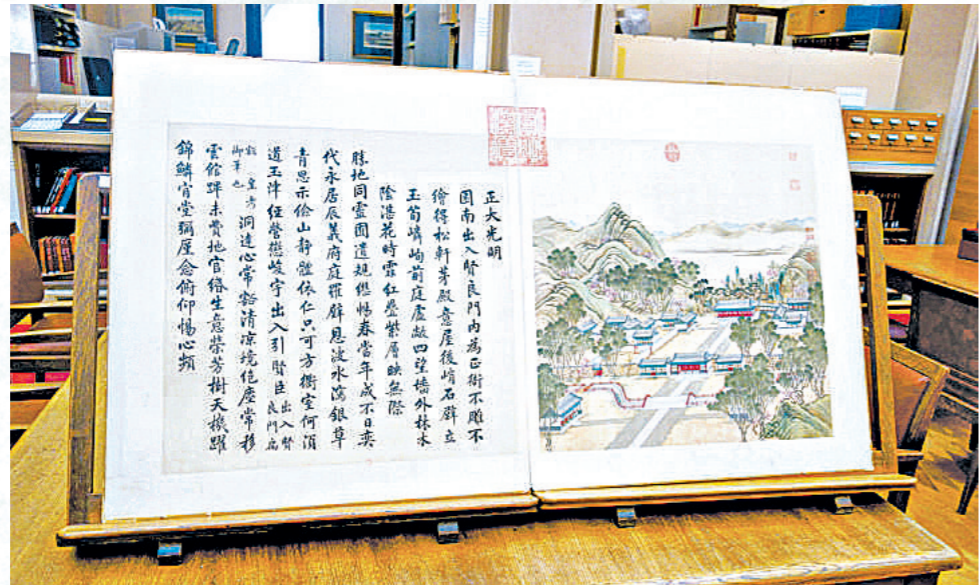 正大光明
園南出入賢良門內為正衙不雕不
繪得松軒茅殿意屋後峭石壁立
玉筍嶙峋前庭虛敞四望墻外林木
陰湛花時霏紅疊紫層映無際
勝地同靈囿遺規繼暢春當年成不日奕
代永居辰義府庭羅壁恩波水瀉銀草
青思示儉山靜體依仁只可方衢室何須
道玉津經營懲峻宇出入引賢臣出入賢良門扁
額皇考御筆也洞達心常豁清凉境絕塵常移
雲館蹕未費地官緡生意榮芳樹天機躍
錦鱗肯堂彌厪念俯仰惕心頻